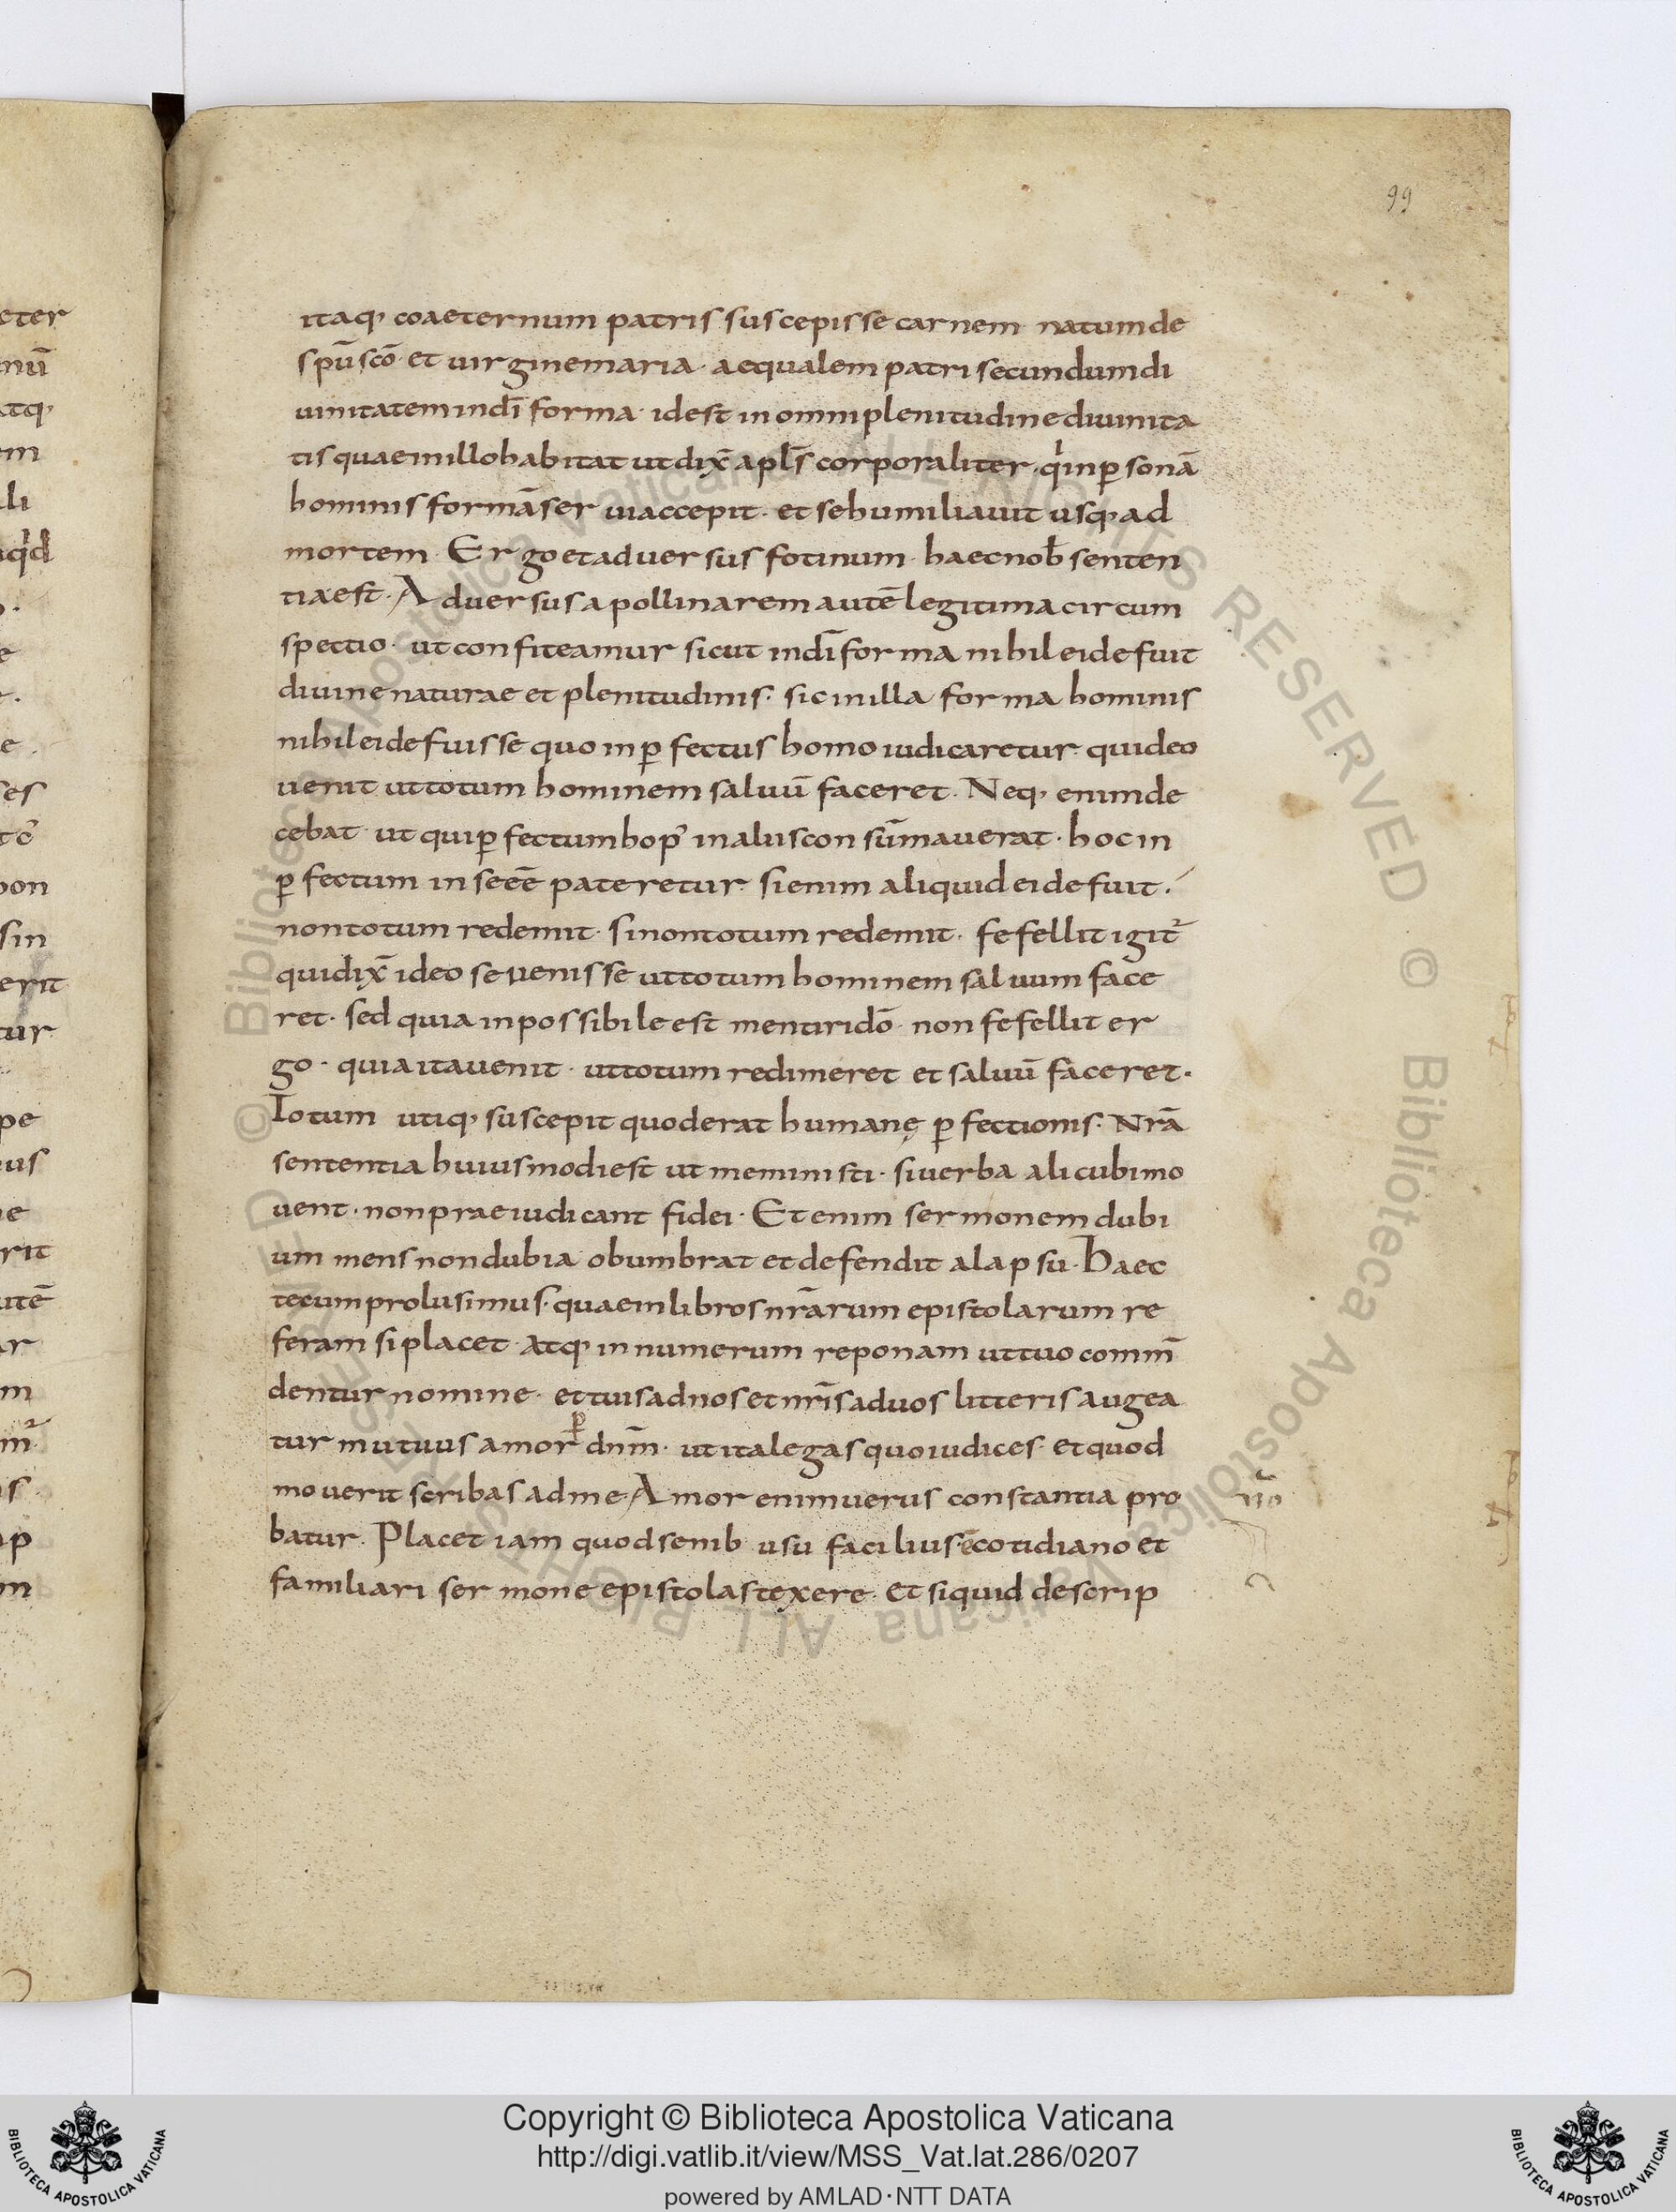 99
itaq, coaeternum patris suscepisse carnem natum de
spū scō et uirgine maria · aequalem patri secundum di
uinitatem in dī forma · id est in omni plenitudine diuinita
tis quae in illo habitat ut dix̄ apls̄ corporaliter · qi in p̱sonā
hominis formā serui accepit · et se humiliauit usq, ad
mortem · Ergo et aduersus fotinum · haec nob̄ senten
tia est · Aduersus apollinarem autē legitima circum
spectio · ut confiteamur sicut in dī forma nihil ei defuit
diuine naturae et plenitudinis · sic in illa forma hominis
nihil ei defuisse quo inp̱fectus homo iudicaretur · qui deo
uenit ut totum hominem saluū faceret · Neq, enim de
cebat ut qui p̱fectum hop' in aliis consūmauerat · hoc in
p̱fectum in se eē pateretur · si enim aliquid ei defuit ·
non totum redemit · si non totum redemit · fefellit igit᷑
qui dix̄ ideo se uenisse ut totum hominem saluum face
ret · sed quia inpossibile est mentiri dō · non fefellit er
go · quia ita uenit · ut totum redimeret et saluū faceret ·
Totum utiq, suscepit quod erat humanę p̱fectionis · Nrā
sententia huiusmodi est ut meministi · si uerba alicubi mo
uent · non praeiudicant fidei · Etenim sermonem dubi
um mens non dubia obumbrat et defendit a lapsu · Haec
tecum prolusimus · quae in libros nrārum epistolarum re
feram si placet · atq, in numerum reponam ut tuo comm̄
dentur nomine · et tuis ad nos et nrīs ad uos litteris augea
tur mutuus amor p̱ dnm̄ · ut ita legas quo iudices · et quod
mouerit scribas ad me · Amor enim uerus constantia pro
batur · Placet iam quod senib usu facilius · ē cotidiano et
familiari sermone epistolas texere · et siquid de scrip
Copyright © Biblioteca Apostolica Vaticana
http://digi.vatlib.it/view/MSS_Vat.lat.286/0207
powered by AMLAD·NTT DATA
BIBLIOTECA APOSTOLICA VATICANA
BIBLIOTECA APOSTOLICA VATICANA